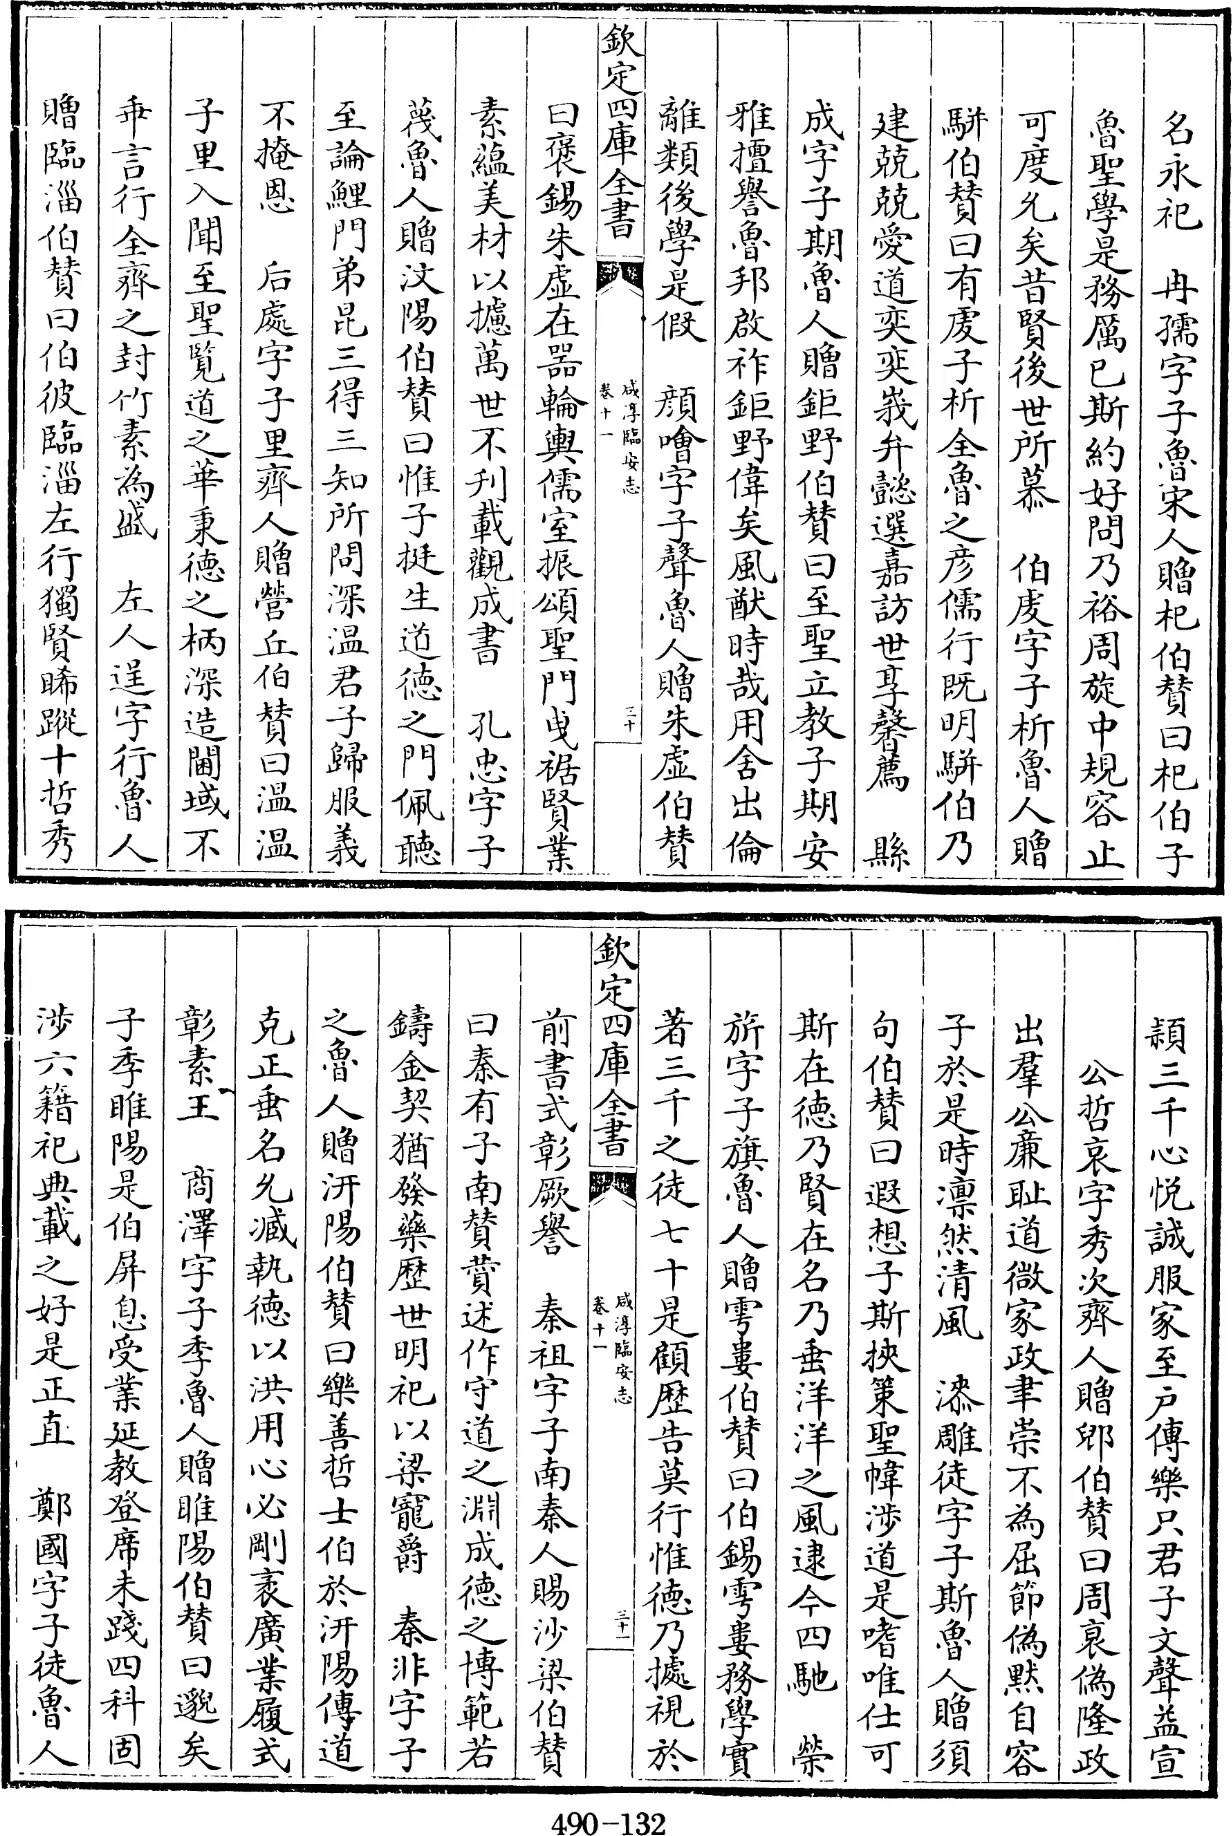 名永祀　冉孺字子魯宋人贈杞伯贊曰杞伯子
魯聖學是務厲已斯約好問乃裕周旋中規容止
可度允矣昔賢後世所慕　伯虔字子析魯人贈
駢伯贊曰有虔子析全魯之彦儒行既明駢伯乃
建兢兢愛道奕奕峩弁懿選嘉訪世享馨薦　縣
成字子期魯人贈鉅野伯贊曰至聖立教子期安
雅擅譽魯邦啟祚鉅野偉矣風猷時哉用舍出倫
離類後學是假　顔噲字子聲魯人贈朱虚伯贊
欽定四庫全書　咸淳臨安志　卷十一　三十
曰褒錫朱虚在器輪輿儒室振頌聖門曵裾賢業
素藴美材以攄萬世不刋載觀成書　孔忠字子
蔑魯人贈汶陽伯贊曰惟子挺生道德之門佩聽
至論鯉門弟昆三得三知所問深温君子歸服義
不掩恩　后處字子里齊人贈營丘伯贊曰温温
子里入聞至聖覧道之華秉德之柄深造閫域不
乖言行全齊之封竹素為盛　左人郢字行魯人
贈臨淄伯贊曰伯彼臨淄左行獨賢睎蹤十哲秀
頴三千心悦誠服家至户傳樂只君子文聲益宣
公晳哀字季次齊人贈郳伯贊曰周衰偽隆政
出羣公廉耻道微家政聿崇不為屈節偽黙自容
子於是時凛然清風　漆雕徒字子斯魯人贈須
句伯贊曰遐想子斯挾策聖幃涉道是嗜唯仕可
斯在德乃賢在名乃垂洋洋之風逮今四馳　榮
旂字子旗魯人贈雩婁伯贊曰伯錫雩婁務學實
著三千之徒七十是顧歴告莫行惟德乃據視於
欽定四庫全書　咸淳臨安志　卷十一　三十一
前書式彰厥譽　秦祖字子南秦人賜沙梁伯贊
曰秦有子南贊贊述作守道之淵成德之博範若
鑄金契猶發藥歴世明祀以梁寵爵　秦非字子
之魯人贈汧陽伯贊曰樂善哲士伯於汧陽傳道
克正垂名允臧執德以洪用心必剛袤廣業履式
彰素王　商澤字子季魯人贈睢陽伯贊曰邈矣
子季睢陽是伯屏息受業延教登席未踐四科固
涉六籍祀典載之好是正直　鄭國字子徒魯人
490-132